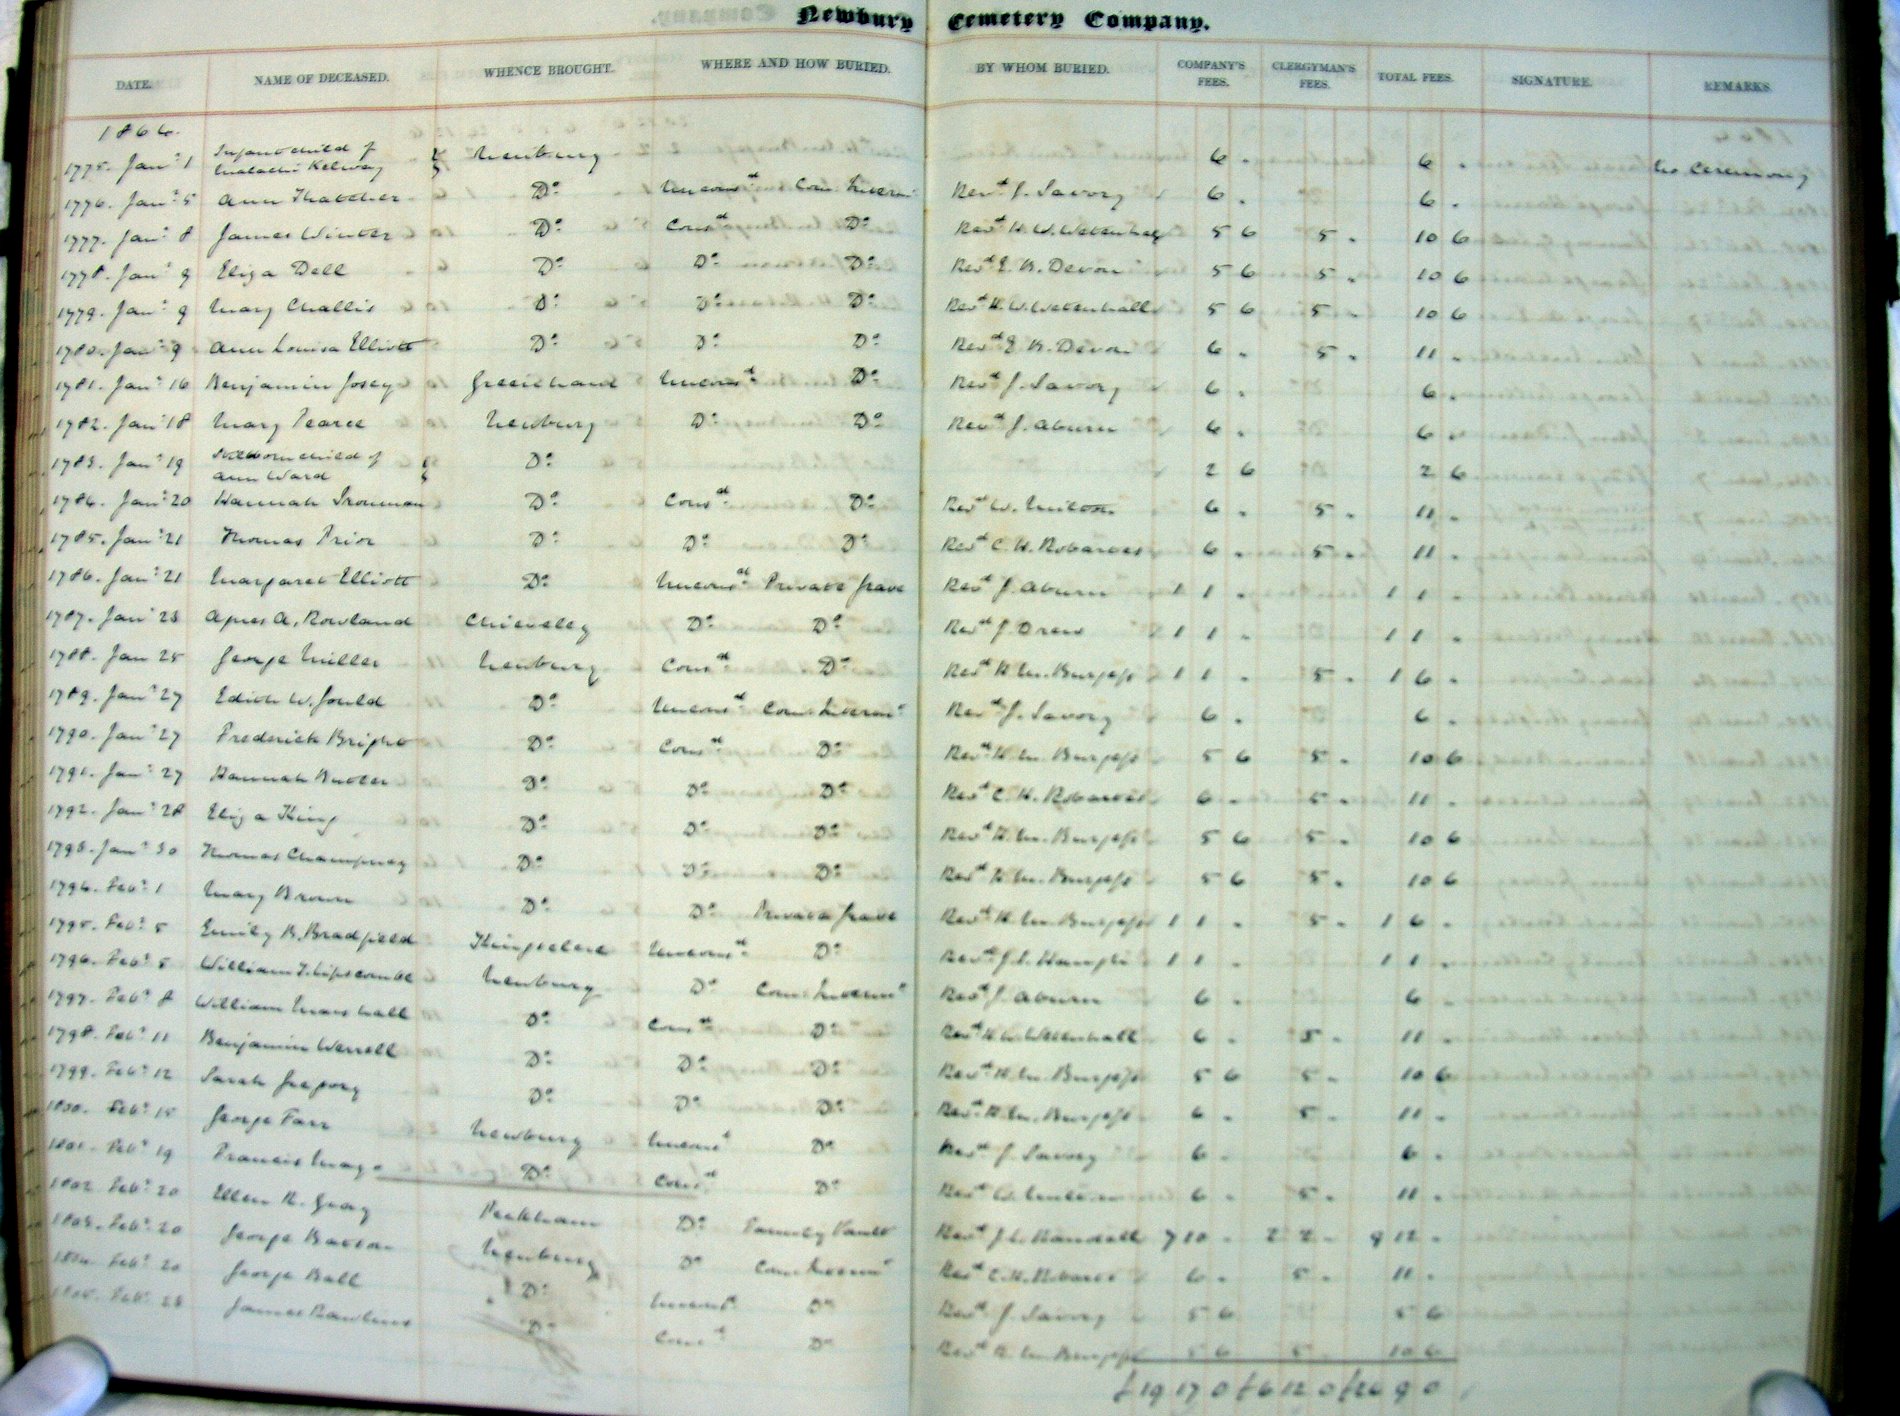 Newbury Cemetery Company.
DATE. NAME OF DECEASED. WHENCE BROUGHT. WHERE AND HOW BURIED. BY WHOM BURIED. COMPANY'S FEES. CLERGYMAN'S FEES. TOTAL FEES. SIGNATURE. REMARKS.
1864.
1775. Jany 1 Infant child of Malachi Kelway } Newbury 6 - 6 - No Ceremony
1776. Jany 5 Ann Thatcher Do Unconsd Com. Interm Revd J. Savory 6 - 6 -
1777. Jany 8 James Winter Do Consd Do Revd H. W. Wetenhall 5 6 5 - 10 6
1778. Jany 9 Eliza Dell Do Do Do Revd E. B. Devon 5 6 5 - 10 6
1779. Jany 9 Mary Challis Do Do Do Revd H. W. Wetenhall 5 6 5 - 10 6
1780. Jany 9 Ann Louisa Elliott Do Do Do Revd E. B. Devon 6 - 5 - 11 -
1781. Jany 16 Benjamin Josey Greenham Unconsd Do Revd J. Savory 6 - 6 -
1782. Jany 18 Mary Pearce Newbury Do Do Revd J. Aburn 6 - 6 -
1783. Jany 19 Stillborn child of Ann Ward } Do 2 6 2 6
1784. Jany 20 Hannah Ironman Do Consd Do Revd W. Milton 6 - 5 - 11 -
1785. Jany 21 Thomas Prior Do Do Do Revd C. H. Robarts 6 - 5 - 11 -
1786. Jany 21 Margaret Elliott Do Unconsd Private Grave Revd J. Aburn 1 1 - 1 1 -
1787. Jany 23 Agnes A. Rowland Chieveley Do Do Revd J. Drew 1 1 - 1 1 -
1788. Jany 25 George Miller Newbury Consd Do Revd H. M. Burgess 1 1 - 5 - 1 6 -
1789. Jany 27 Edith W. Gould Do Unconsd Com. Intermt Revd J. Savory 6 - 6 -
1790. Jany 27 Frederick Bright Do Consd Do Revd H. M. Burgess 5 6 5 - 10 6
1791. Jany 27 Hannah Butler Do Do Do Revd C. H. Robarts 6 - 5 - 11 -
1792. Jany 28 Eliza King Do Do Do Revd H. M. Burgess 5 6 5 - 10 6
1793. Jany 30 Thomas Champney Do Do Do Revd H. M. Burgess 5 6 5 - 10 6
1794. Feby 1 Mary Brown Do Do Private Grave Revd H. M. Burgess 1 1 - 5 - 1 6 -
1795. Feby 5 Emily B. Bradfield Kingsclere Unconsd Do Revd 1 1 - 1 1 -
1796. Feby 5 William T. Lipscombe Newbury Do Com. Intermt Revd J. Aburn 6 - 6 -
1797. Feby 8 William Marshall Do Consd Do Revd H. W. Wetenhall 6 - 5 - 11 -
1798. Feby 11 Benjamin Werrell Do Do Do Revd H. M. Burgess 5 6 5 - 10 6
1799. Feby 12 Sarah Gregory Do Do Do Revd H. M. Burgess 6 - 5 - 11 -
1800. Feby 15 George Farr Newbury Unconsd Do Revd J. Savory 6 - 6 -
1801. Feby 19 Francis Mayo Do Consd Do Revd W. Milton 6 - 5 - 11 -
1802. Feby 20 Ellen R. Gray Peckham Do Family Vault Revd J. L. Randall 7 10 - 2 2 - 9 12 -
1803. Feby 20 George Batson Newbury Do Com. Intermt Revd C. H. Robarts 6 - 5 - 11 -
1804. Feby 20 George Ball Do Unconsd Do Revd J. Savory 5 6 5 6
1805. Feby 23 James Rawlins Do Consd Do Revd H. M. Burgess 5 6 5 - 10 6
£19 17 0 £6 12 0 £26 9 0